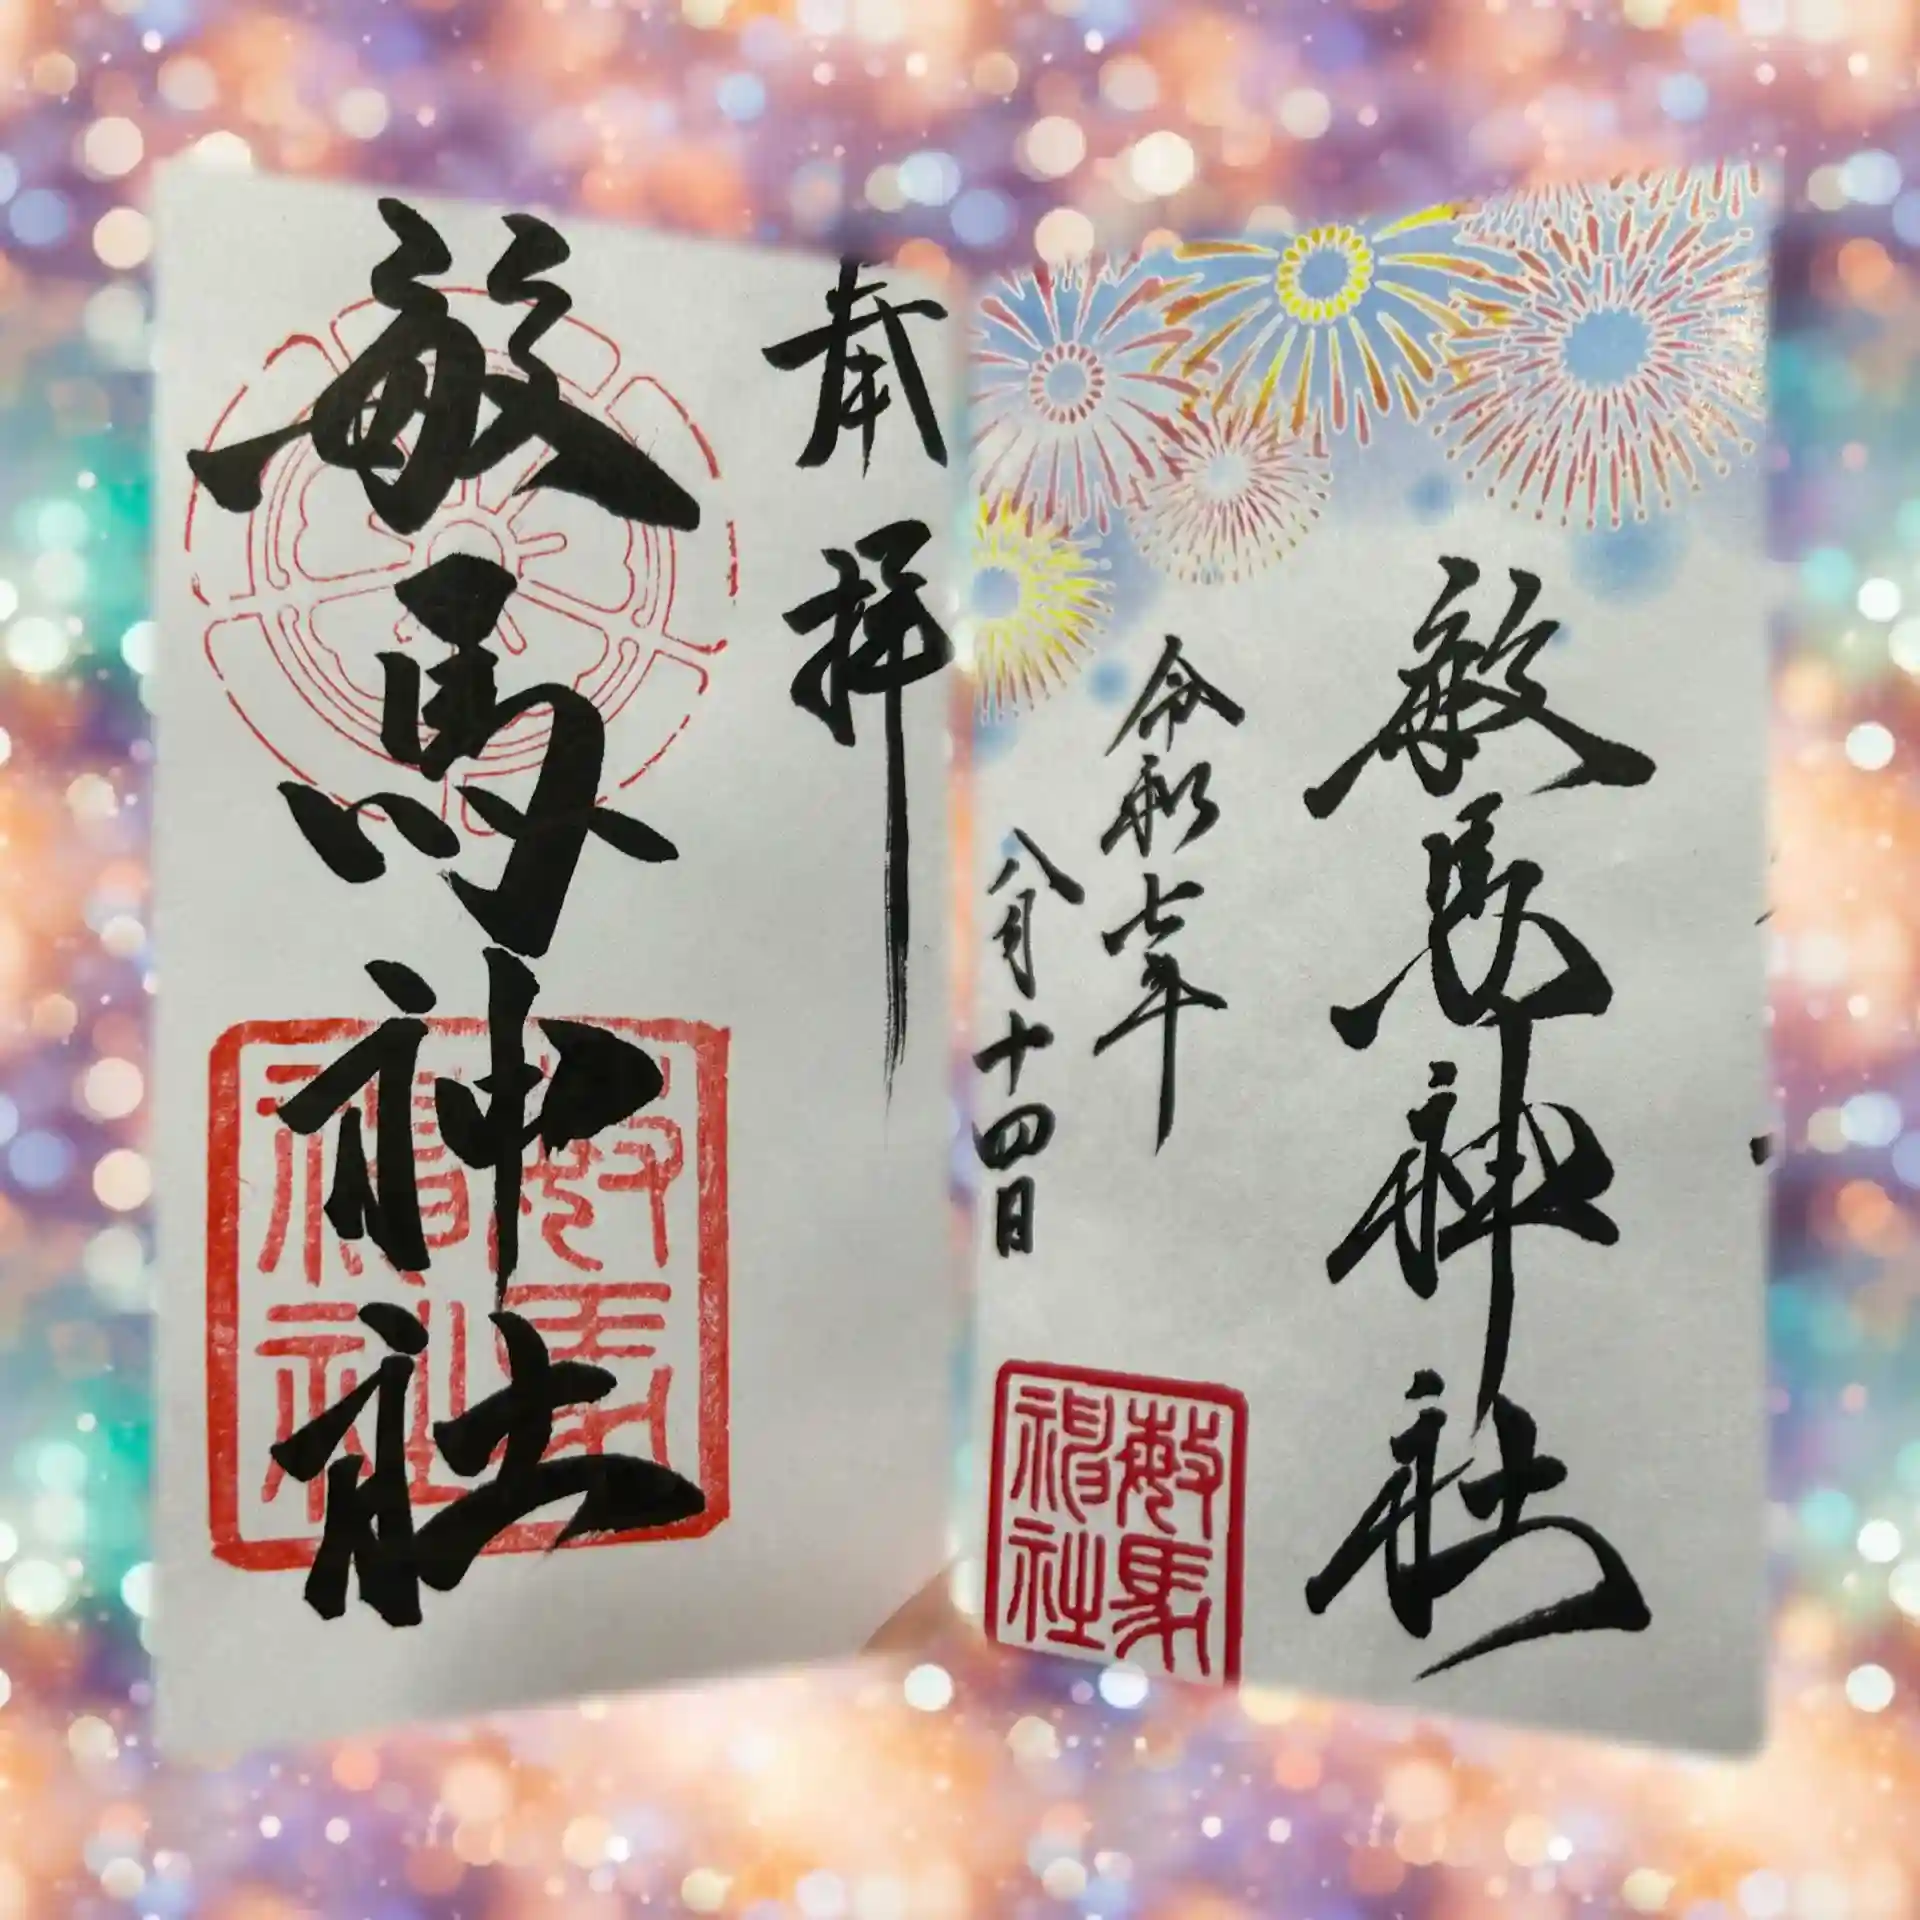 奉拝
敏馬神社
敏馬神社
敏馬神社
令和七年
八月十四日
敏馬神社